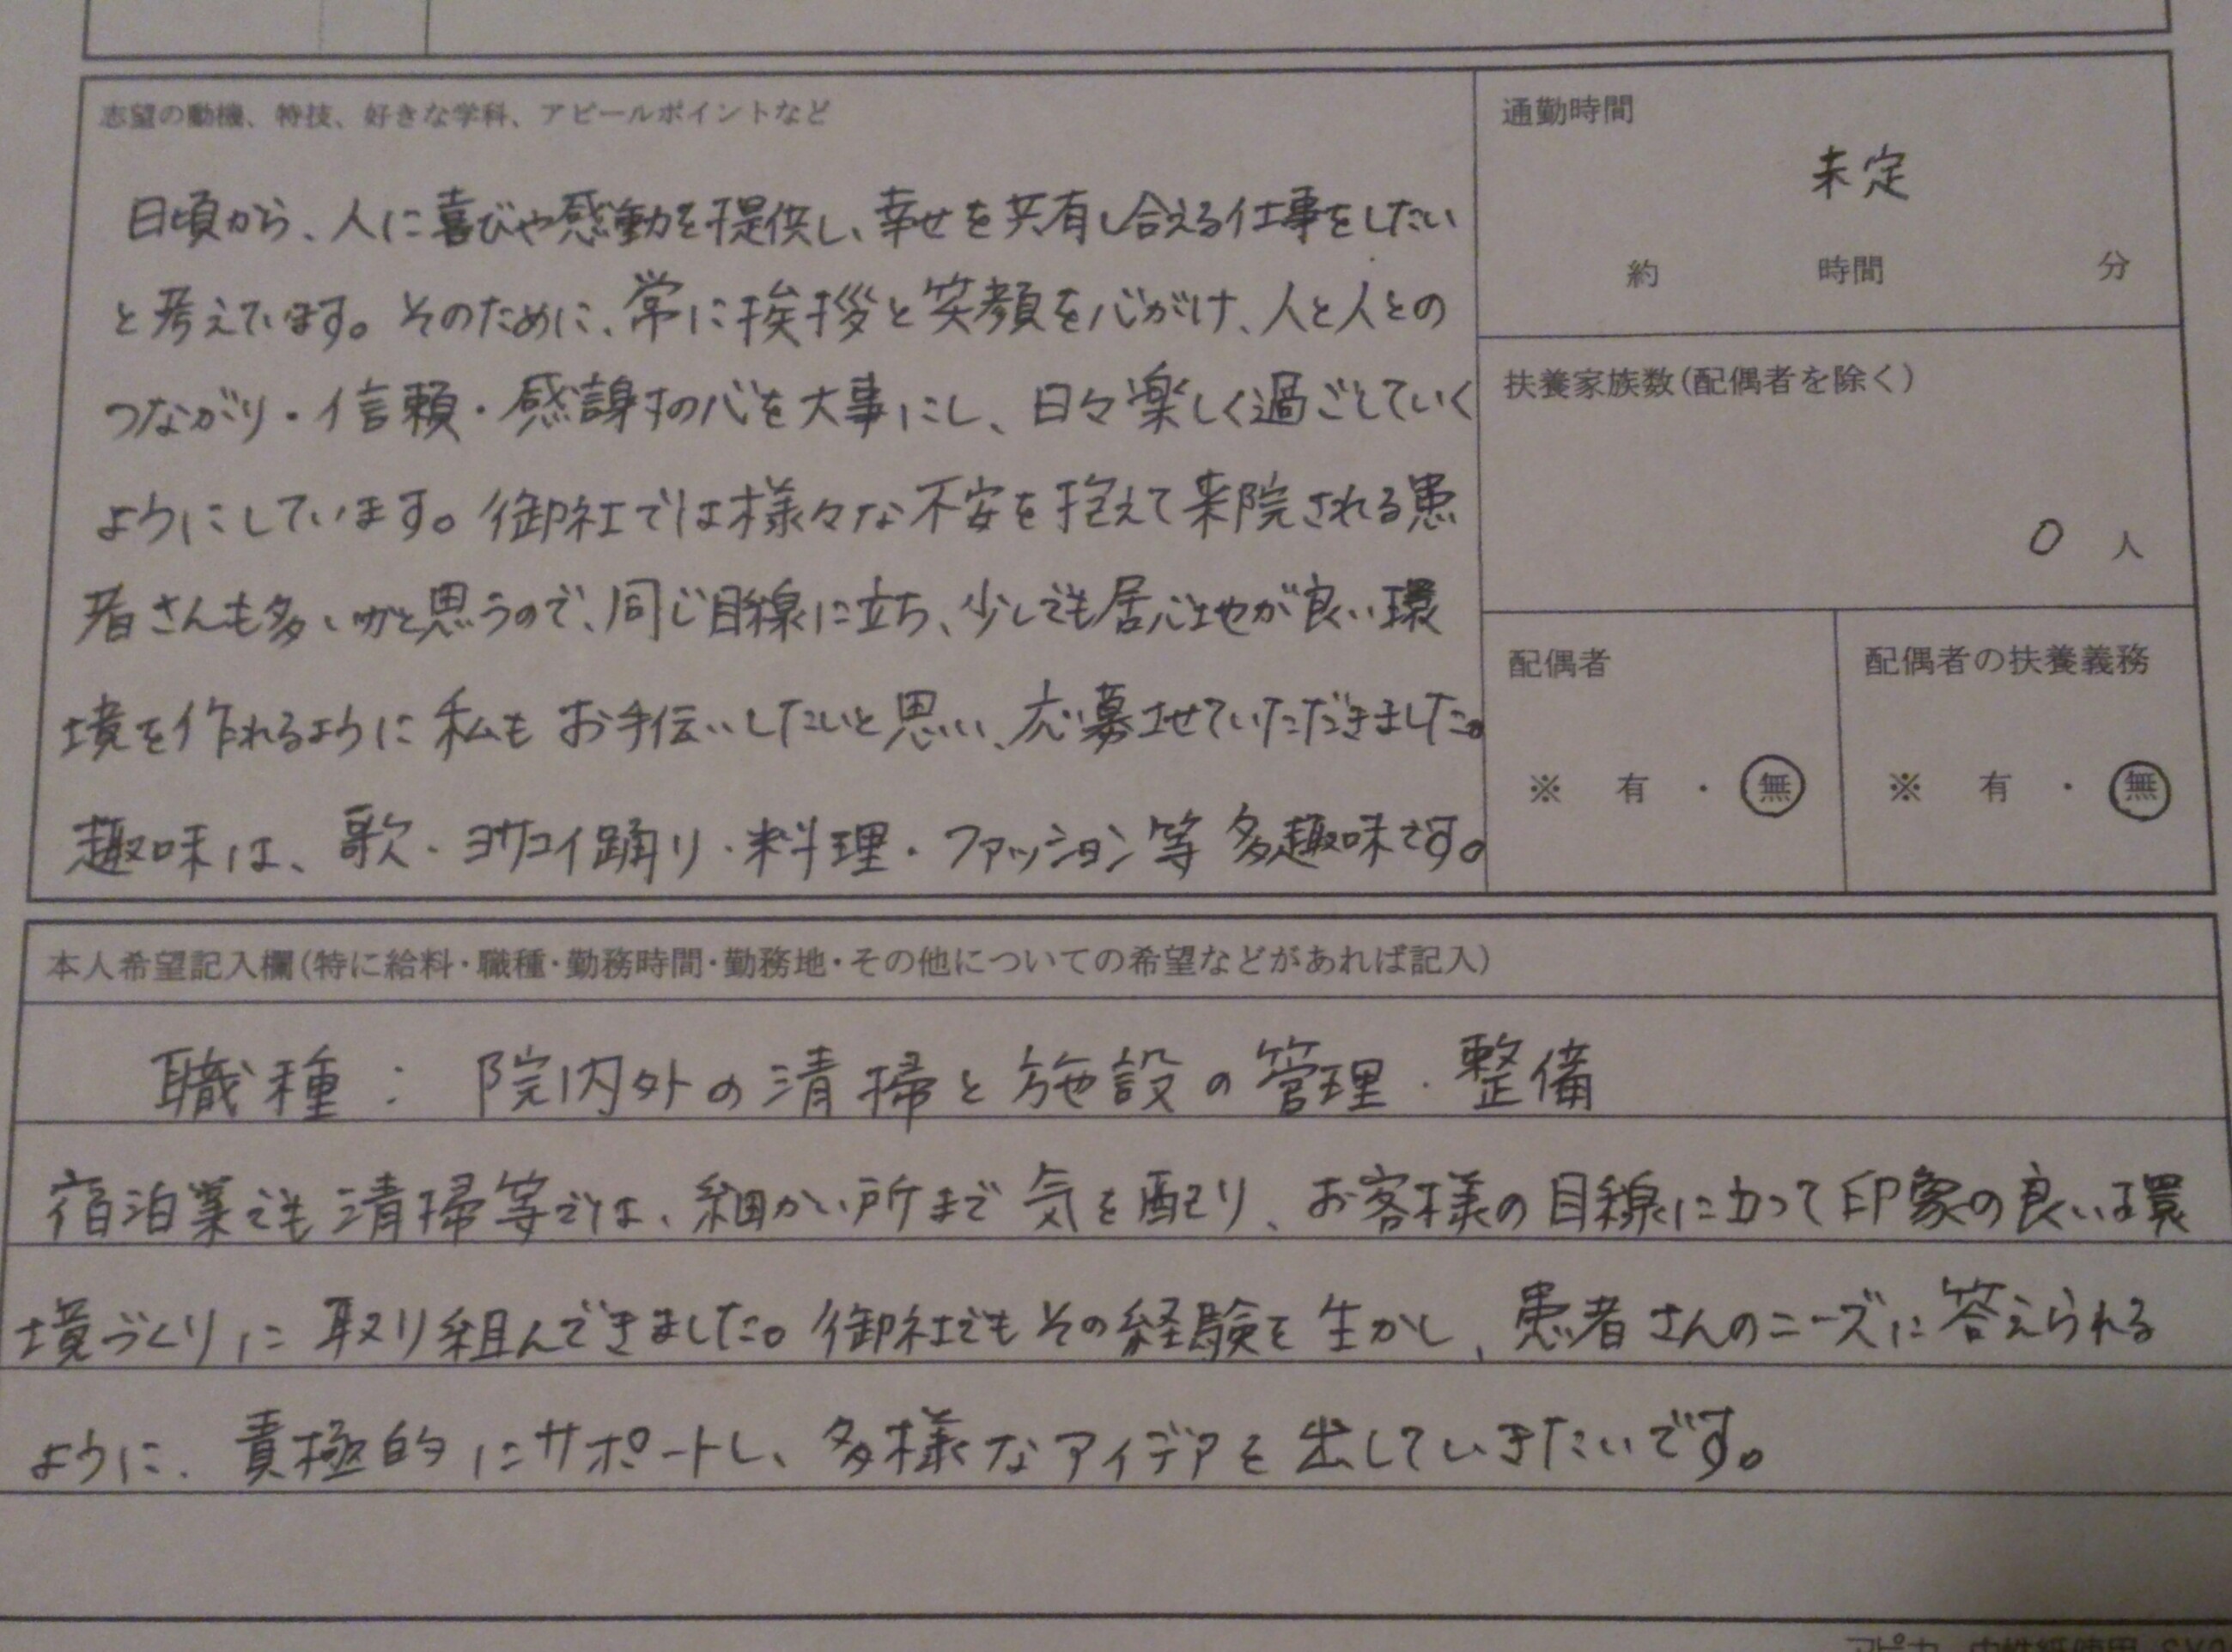 志望の動機、特技、好きな学科、アピールポイントなど
日頃から、人に喜びや感動を提供し、幸せを共有し合える仕事をしたい
と考えています。そのために、常に挨拶と笑顔を心がけ、人と人との
つながり・信頼・感謝の心を大事にし、日々楽しく過ごしていく
ようにしています。御社では様々な不安を抱えて来院される患
者さんも多いかと思うので、同じ目線に立ち、少しでも居心地が良い環
境を作れるように私もお手伝いしたいと思い、応募させていただきました。
趣味は、歌・ヨサコイ踊り・料理・ファッション等多趣味です。
通勤時間
未定
約 時間 分
扶養家族数(配偶者を除く)
0 人
配偶者
※ 有 ・ 無
配偶者の扶養義務
※ 有 ・ 無
本人希望記入欄(特に給料・職種・勤務時間・勤務地・その他についての希望などがあれば記入)
職種：院内外の清掃と施設の管理・整備
宿泊業でも清掃等では、細かい所まで気を配り、お客様の目線に立って印象の良い環
境づくりに取り組んできました。御社でもその経験を生かし、患者さんのニーズに答えられる
ように、責極的にサポートし、多様なアイデアを出していきたいです。